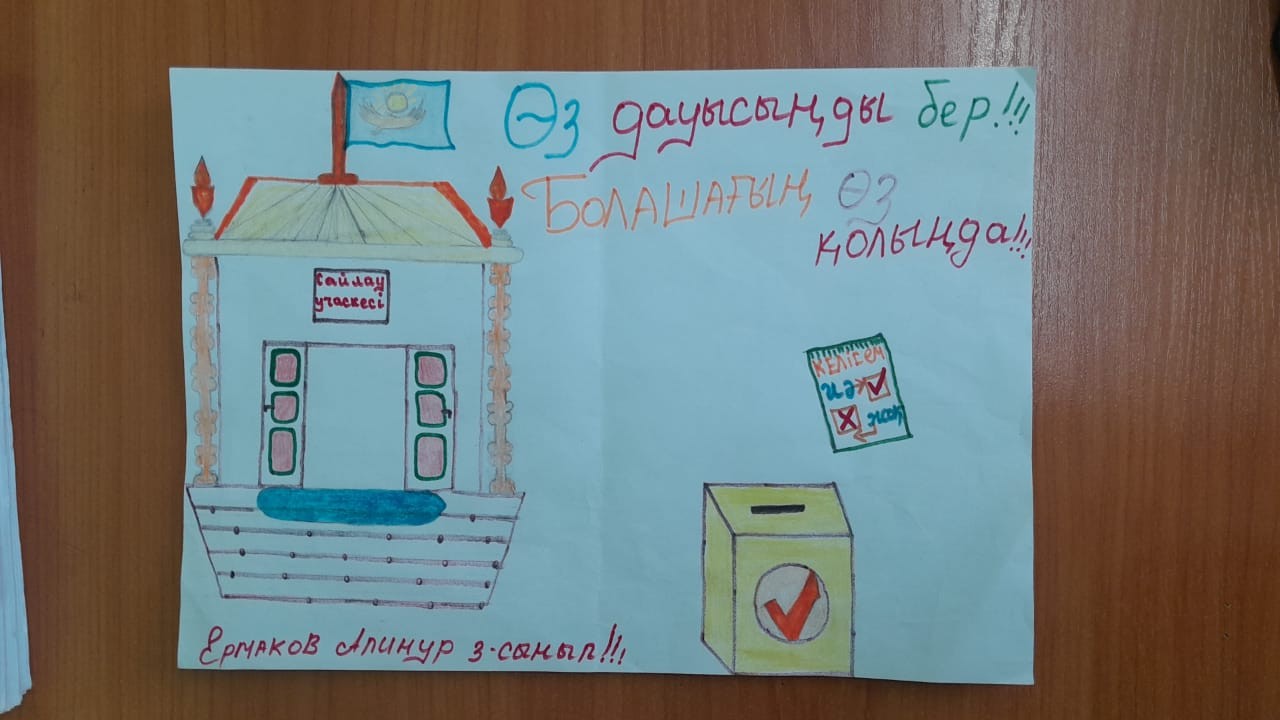 Өз дауысыңды бер!!!
БОЛАШАҒЫҢ ӨЗ
қолыңда!!!
сайлау
учаскесі
КЕЛІСЕМ
иә
жоқ
Ермаков Алинур 3-сынып!!!